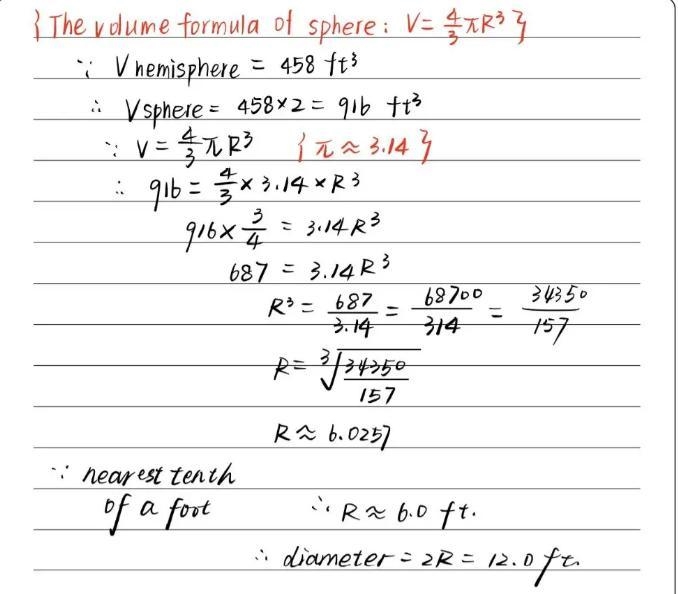 {The volume formula of sphere: V = 4/3 πR³}
∵ V hemisphere = 458 ft³
∴ V sphere = 458×2 = 916 ft³
∵ V = 4/3 πR³ {π ≈ 3.14}
∴ 916 = 4/3 × 3.14 × R³
916 × 3/4 = 3.14R³
687 = 3.14R³
R³ = 687/3.14 = 68700/314 = 34350/157
R = ∛(34350/157)
R ≈ 6.0257
∵ nearest tenth
of a foot ∴ R ≈ 6.0 ft.
∴ diameter = 2R = 12.0 ft.